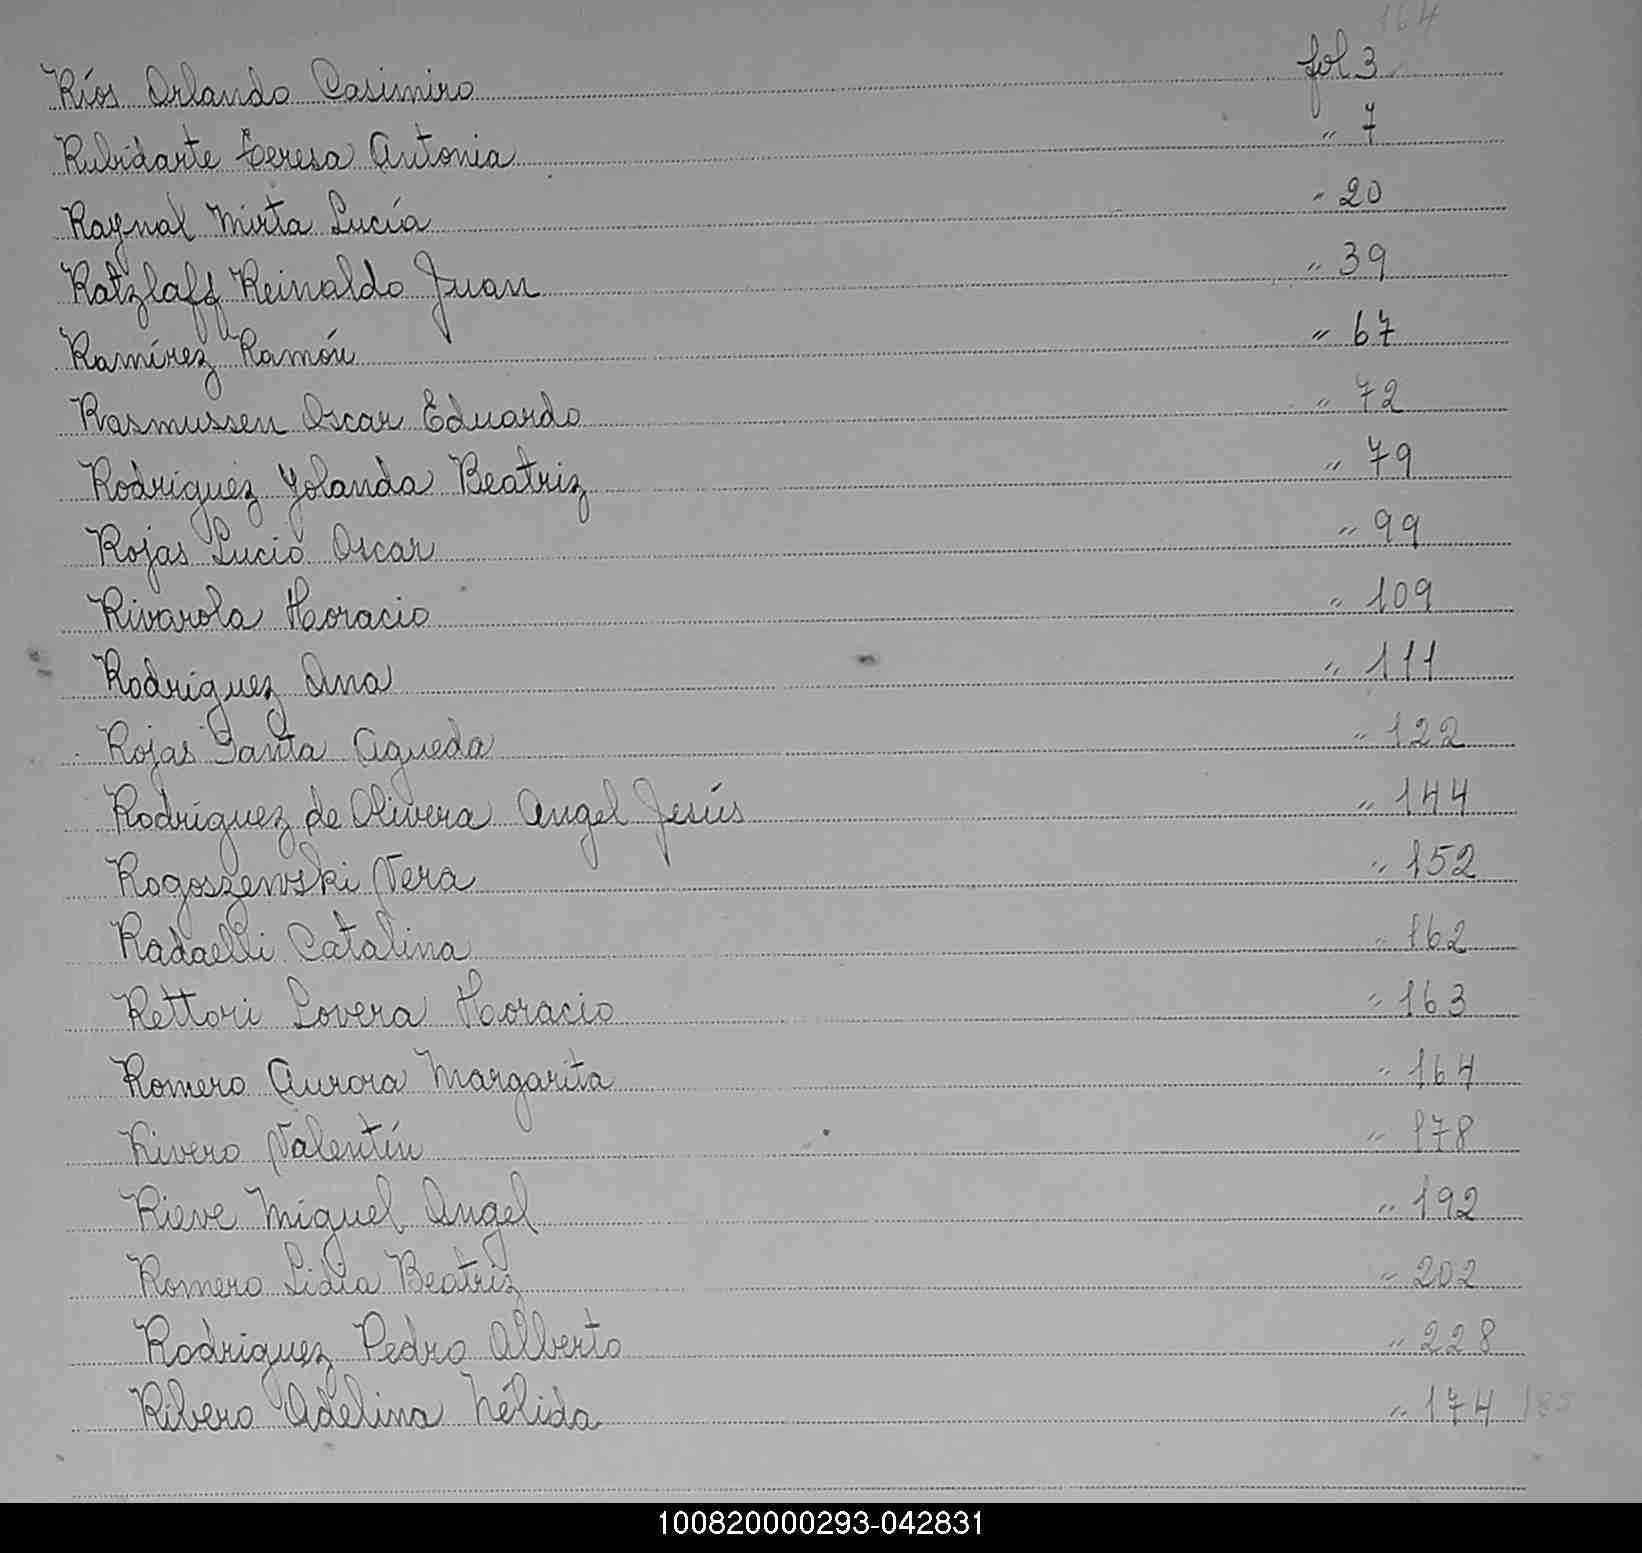 164
Ríos Orlando Casimiro fol 3
Rubidarte Teresa Antonia " 7
Raynal Mirta Lucía " 20
Ratzlaff Reinaldo Juan " 39
Ramírez Ramón " 67
Rasmussen Oscar Eduardo " 72
Rodríguez Yolanda Beatriz " 79
Rojas Lucio Oscar " 99
Rivarola Horacio " 109
Rodríguez Ana " 111
Rojas Santa Agueda " 122
Rodríguez de Olivera Angel Jesús " 144
Rogoszewski Vera " 152
Radaelli Catalina " 162
Rettori Lovera Horacio " 163
Romero Aurora Margarita " 164
Rivero Valentín " 178
Rieve Miguel Angel " 192
Romero Lidia Beatriz " 202
Rodríguez Pedro Alberto " 228
Ribero Adelina Nélida " 174
100820000293-042831